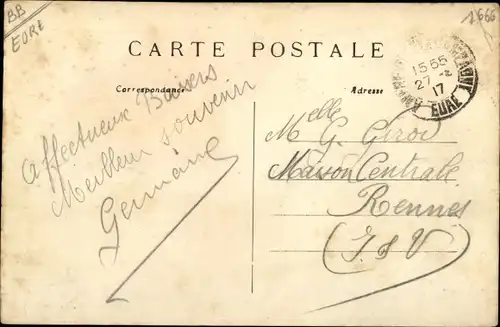 BB
EURE
1666
CARTE POSTALE
Correspondance
Adresse
15 55
27 - 2
17
EURE
Affectueux Baisers
Meilleur souvenir
Germaine
Melle G.
Maison Centrale
Rennes
(I & V)